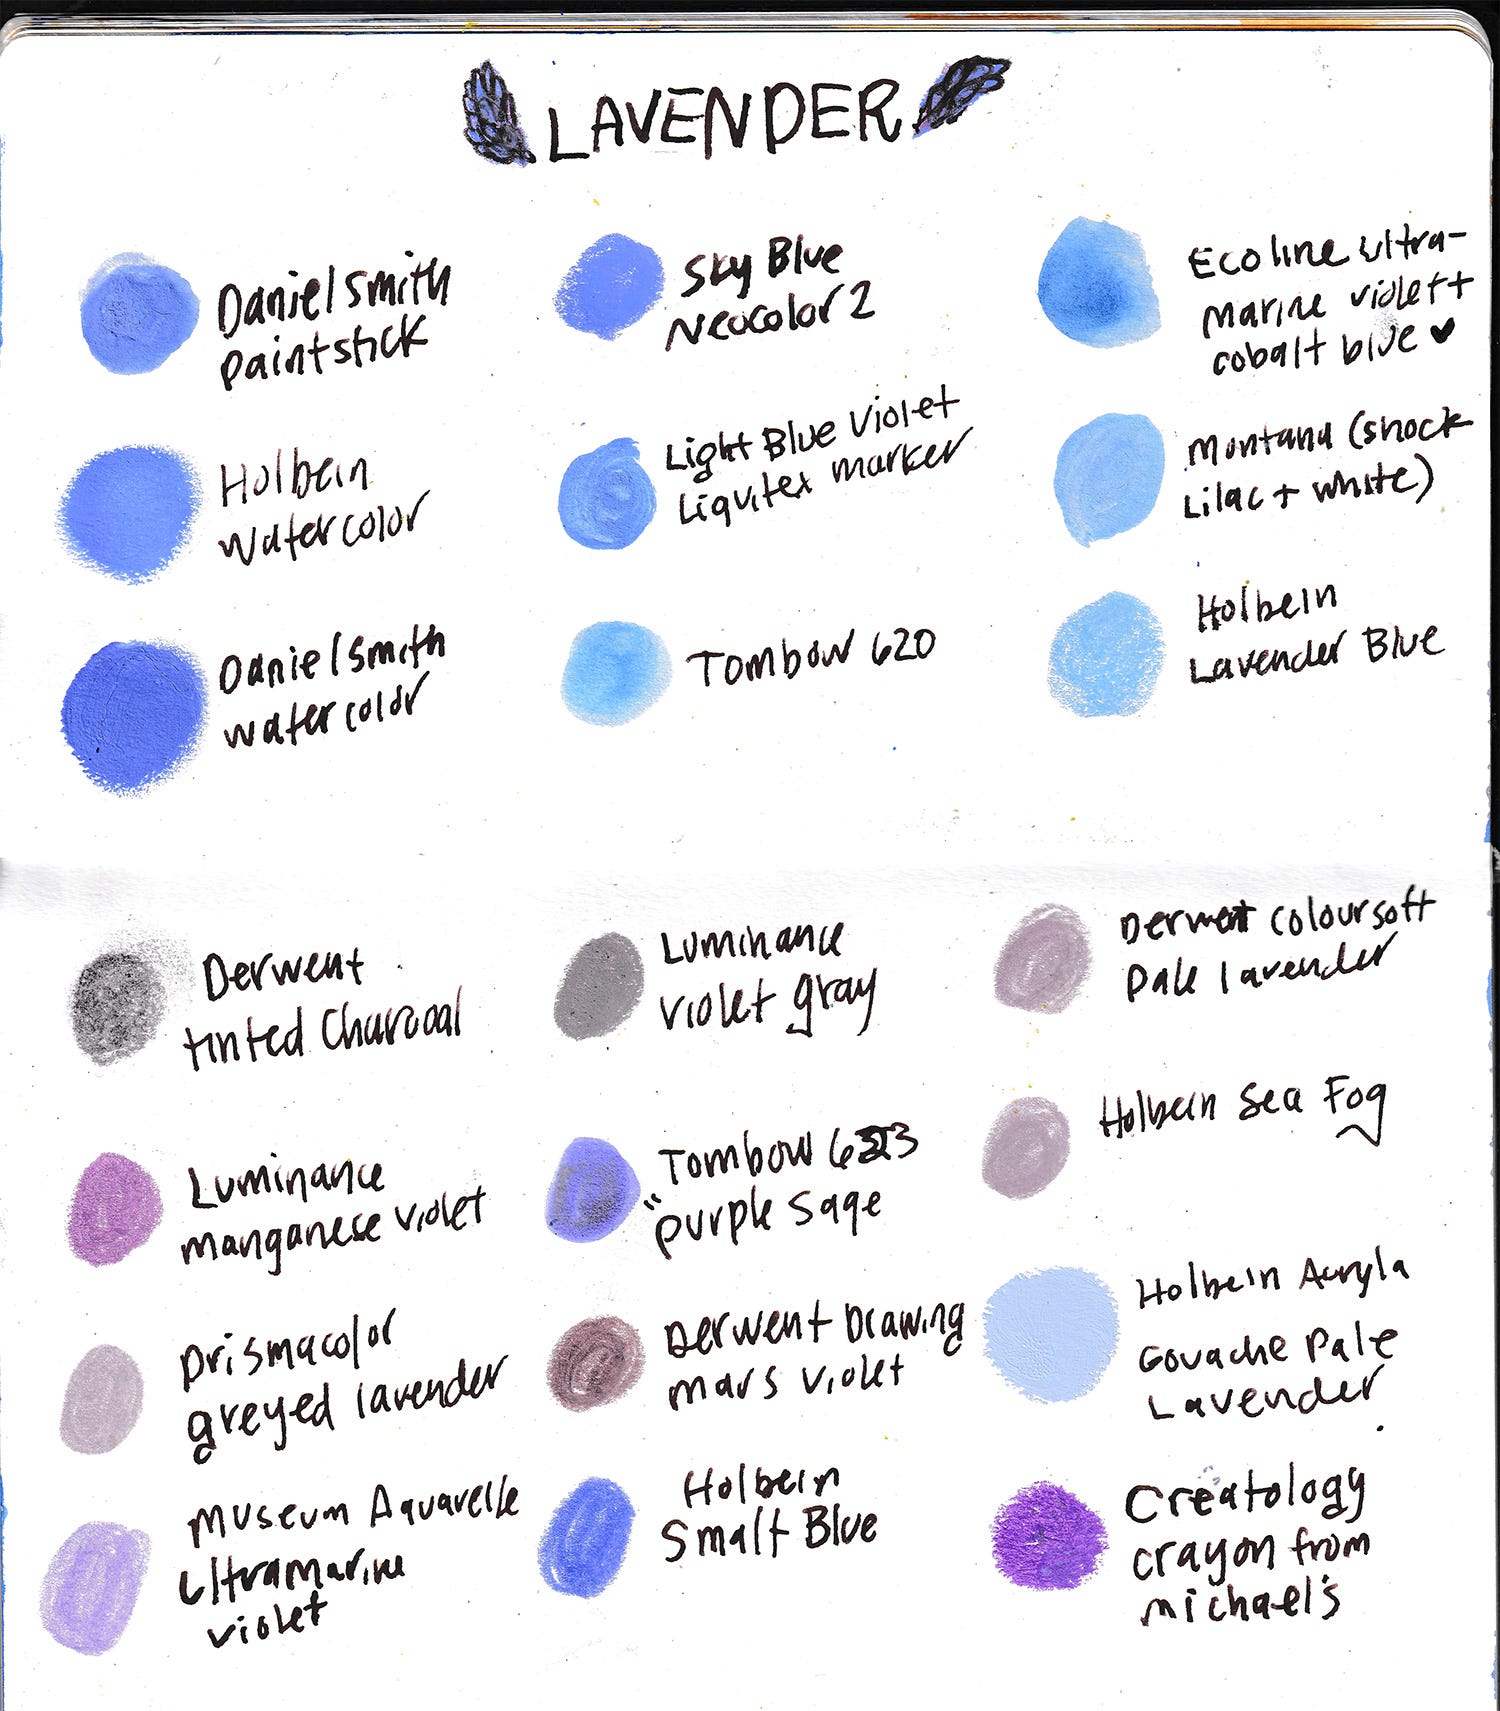 LAVENDER
Daniel Smith
paintstick
Sky Blue
Neocolor 2
Ecoline ultra-
marine violet +
cobalt blue ♥
Holbein
watercolor
Light Blue Violet
Liquitex marker
Montana (shock
Lilac + white)
Daniel Smith
watercolor
Tombow 620
Holbein
Lavender Blue
Derwent
tinted charcoal
Luminance
violet gray
Derwent coloursoft
Pale lavender
Luminance
manganese violet
Tombow
"purple sage
Holbein Sea Fog
Prismacolor
greyed lavender
Derwent Drawing
mars violet
Holbein Acryla
Gouache Pale
Lavender
Museum Aquarelle
ultramarine
violet
Holbein
Smalt Blue
Creatology
crayon from
michael's